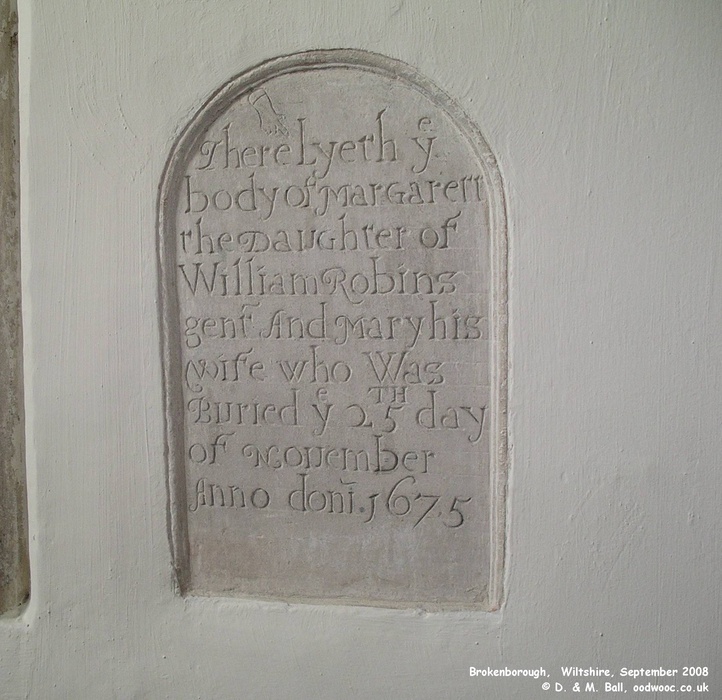 There Lyeth yᵉ
body of Margarett
the Daughter of
William Robins
genᵗ And Mary his
wife who Was
Buried yᵉ 25ᵀᴴ day
of November
Anno doni̅. 1675
Brokenborough, Wiltshire, September 2008
© D. & M. Ball, oodwooc.co.uk